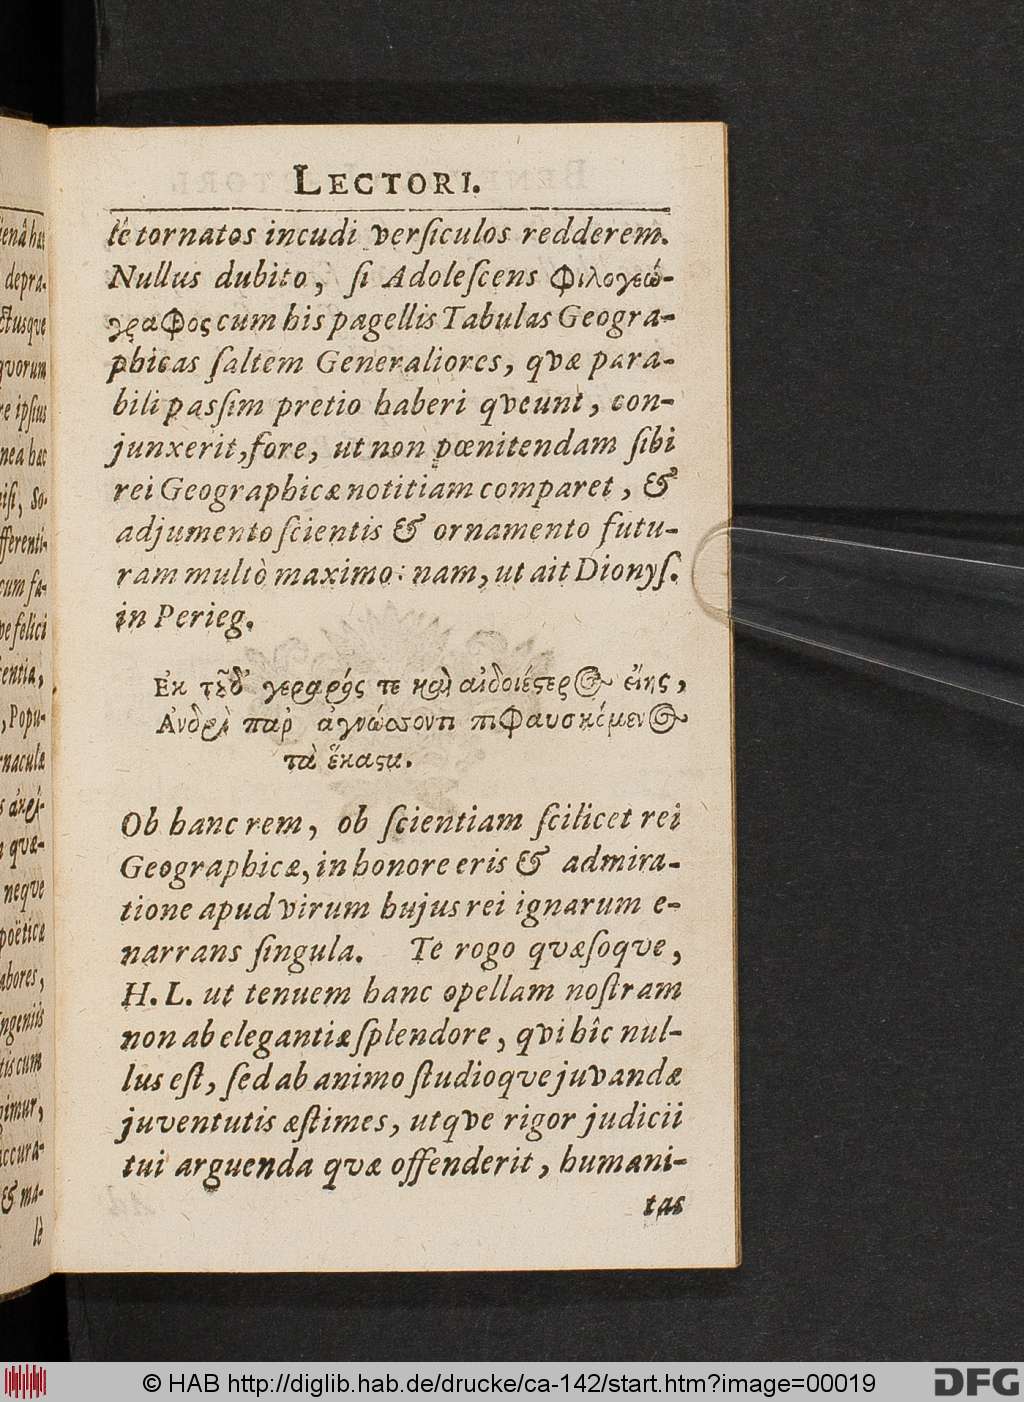 LECTORI.
lè tornatos incudi versiculos redderem.
Nullus dubito, ſi Adoleſcens Φιλογεώ-
γραφος cum his pagellis Tabulas Geogra-
phicas ſaltem Generaliores, qvæ para-
bili paſsim pretio haberi qveunt, con-
junxerit, fore, ut non pœnitendam ſibi
rei Geographicæ notitiam comparet, &
adjumento ſcientis & ornamento futu-
ram multò maximo: nam, ut ait Dionyſ.
in Perieg.
Ἐκ τοῦδ' γεραρός τε καὶ αἰδοιέστερος εἴης,
Ἀνδρὶ παρ' ἀγνώσσοντι πιφαυσκόμενος
τὰ ἕκαστα.
Ob hanc rem, ob ſcientiam ſcilicet rei
Geographicæ, in honore eris & admira-
tione apud virum hujus rei ignarum e-
narrans ſingula. Te rogo qvæſoqve,
H. L. ut tenuem hanc opellam noſtram
non ab elegantiæ ſplendore, qvi hîc nul-
lus eſt, ſed ab animo ſtudioqve juvandæ
juventutis æſtimes, utqve rigor judicii
tui arguenda qvæ offenderit, humani-
tas
ienâ hac
depra-
ctusqve
qvorum
re ipſius
nea hac
niſi, So-
fferenti-
cum fa-
ve felici
entia,
, Popu-
naculæ
qvæ-
neqve
poëtica
abores,
ngeniis
tis cum
pimur,
accura-
& ma-
lè
© HAB http://diglib.hab.de/drucke/ca-142/start.htm?image=00019
DFG